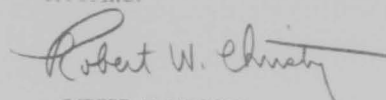 Robert W. Christy